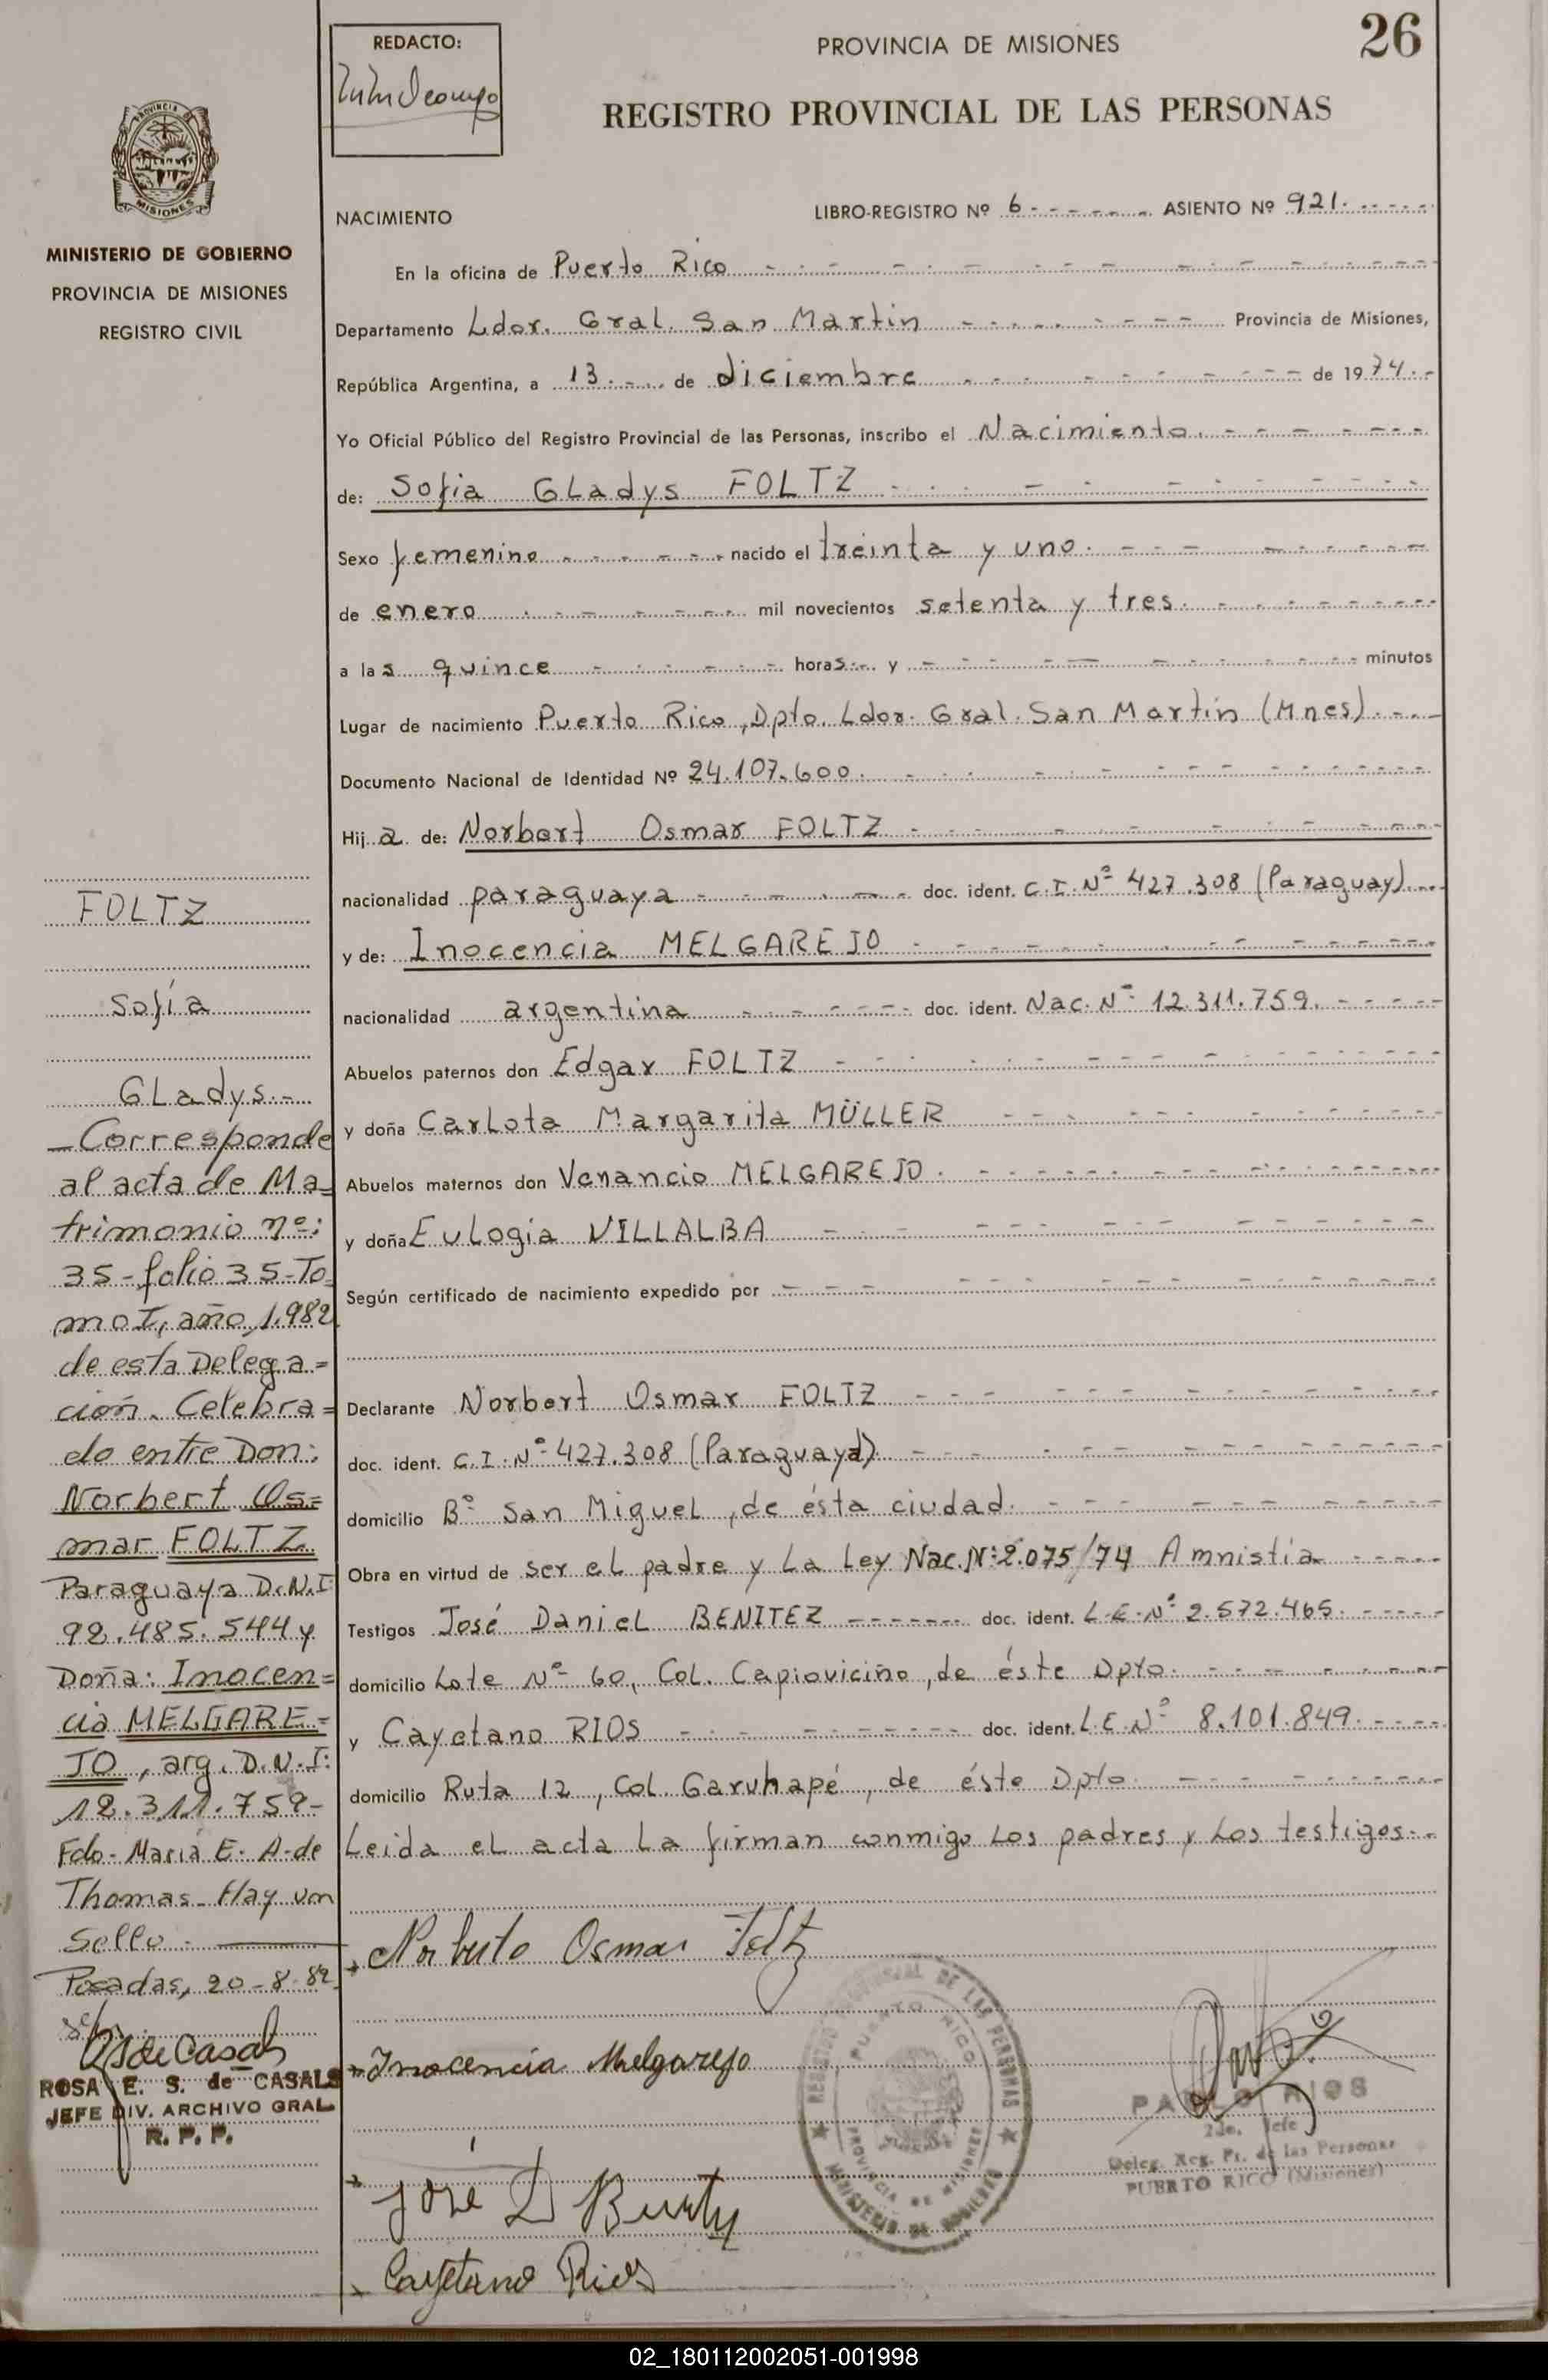 26
REDACTO:
PROVINCIA DE MISIONES
REGISTRO PROVINCIAL DE LAS PERSONAS
PROVINCIA
MISIONES
MINISTERIO DE GOBIERNO
PROVINCIA DE MISIONES
REGISTRO CIVIL
NACIMIENTO
LIBRO-REGISTRO Nº 6 ASIENTO Nº 921.
En la oficina de Puerto Rico
Departamento Ldor. Gral. San Martin Provincia de Misiones,
República Argentina, a 13. de diciembre de 1974.
Yo Oficial Público del Registro Provincial de las Personas, inscribo el Nacimiento.
de: Sofia Gladys FOLTZ
Sexo femenino nacido el treinta y uno.
de enero mil novecientos setenta y tres.
a las quince horas y minutos
Lugar de nacimiento Puerto Rico, Dpto. Ldor. Gral. San Martin (Mnes).
Documento Nacional de Identidad Nº 24.107.600.
Hija de: Norbert Osmar FOLTZ
nacionalidad paraguaya doc. ident. C.I.Nº 427.308 (Paraguay).
y de: Inocencia MELGAREJO
nacionalidad argentina doc. ident. Nac. Nº 12.311.759.
Abuelos paternos don Edgar FOLTZ
y doña Carlota Margarita MÜLLER
Abuelos maternos don Venancio MELGAREJO.
y doña Eulogia VILLALBA
Según certificado de nacimiento expedido por
Declarante Norbert Osmar FOLTZ
doc. ident. C.I.Nº 427.308 (Paraguaya)
domicilio Bº San Miguel, de ésta ciudad.
Obra en virtud de ser el padre y La Ley Nac.Nº 2.075/74 Amnistia
Testigos José Daniel BENITEZ doc. ident. L.E.Nº 2.572.465.
domicilio Lote Nº 60, Col. Capioviciño, de éste Dpto.
y Cayetano RIOS doc. ident. L.E.Nº 8.101.849.
domicilio Ruta 12, Col. Garuhapé, de éste Dpto.
Leida el acta La firman conmigo Los padres y Los testigos.
Norberto Osmar Foltz
Inocencia Melgarejo
José D Benitez
Cayetano Rios
REGISTRO PROVINCIAL DE LAS PERSONAS
PUERTO RICO
PROVINCIA DE MISIONES
MINISTERIO DE GOBIERNO
PABLO RIOS
2do. Jefe
Deleg. Reg. Pr. de las Personas
PUERTO RICO (Misiones)
FOLTZ
Sofía
Gladys.-
-Corresponde
al acta de Ma=
trimonio nº:
35-folio 35-To=
mo I, año, 1.982
de esta Delega=
ción. Celebra=
do entre Don:
Norbert Os=
mar FOLTZ
Paraguaya D.N.I:
92.485.544 y
Doña: Inocen=
cia MELGARE=
JO, arg. D.N.I:
12.311.759-
Fdo- Maria E. A. de
Thomas- Hay un
Sello.-
Posadas, 20-8-82.
ROSA E. S. de CASALS
JEFE DIV. ARCHIVO GRAL.
R. P. P.
02_180112002051-001998